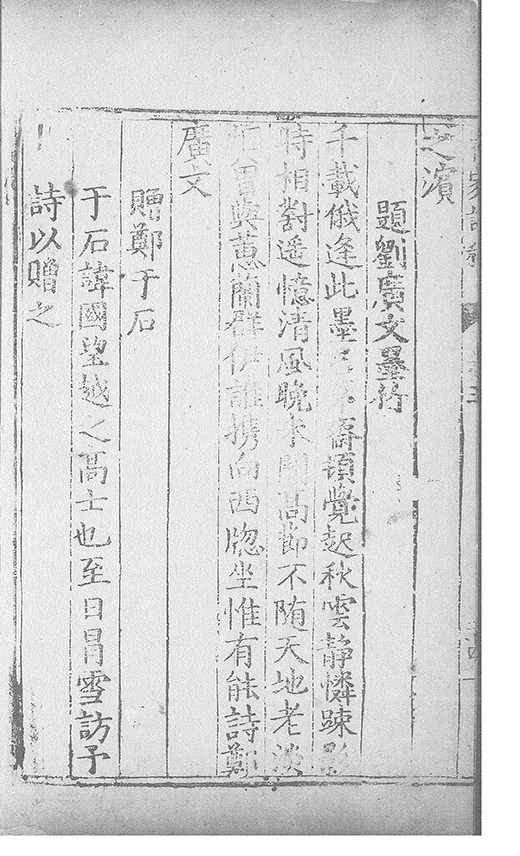 之濱
題劉廣文墨竹
千載俄逢此墨君齋頭覺起秋雲靜憐踈影
時相對遥憶清風晚亦聞高節不随天地老淡
曾與蕙蘭群伊誰携向西牕坐惟有能詩鄭
廣文
贈鄭于石
于石諱國望越之高士也至日冒雪訪予
詩以贈之